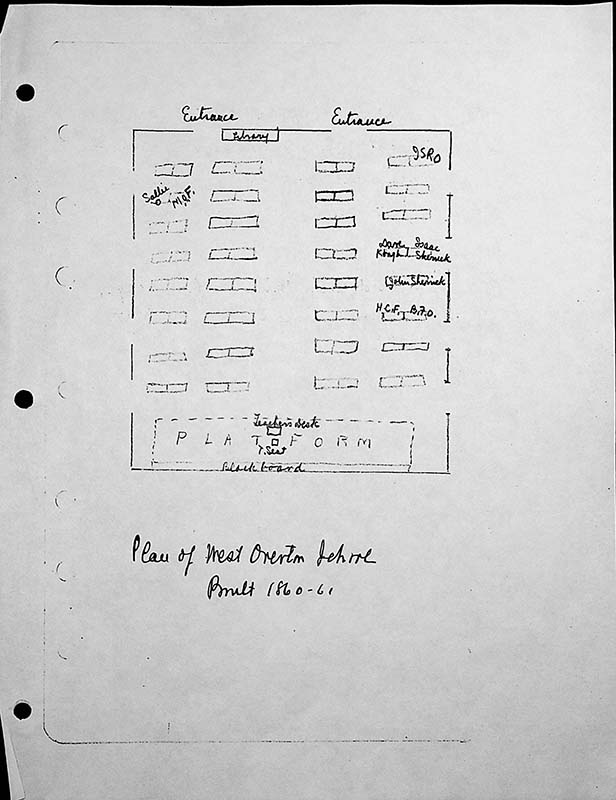 Entrance Entrance
Library
JSRO
Sallie
O. M.O.F.
Isaac
Sherrick
John Sherrick
H.C.F. B.F.O.
Teacher's Desk
PLATFORM
T. Seat
Blackboard
Plan of West Overton School
Built 1860-61